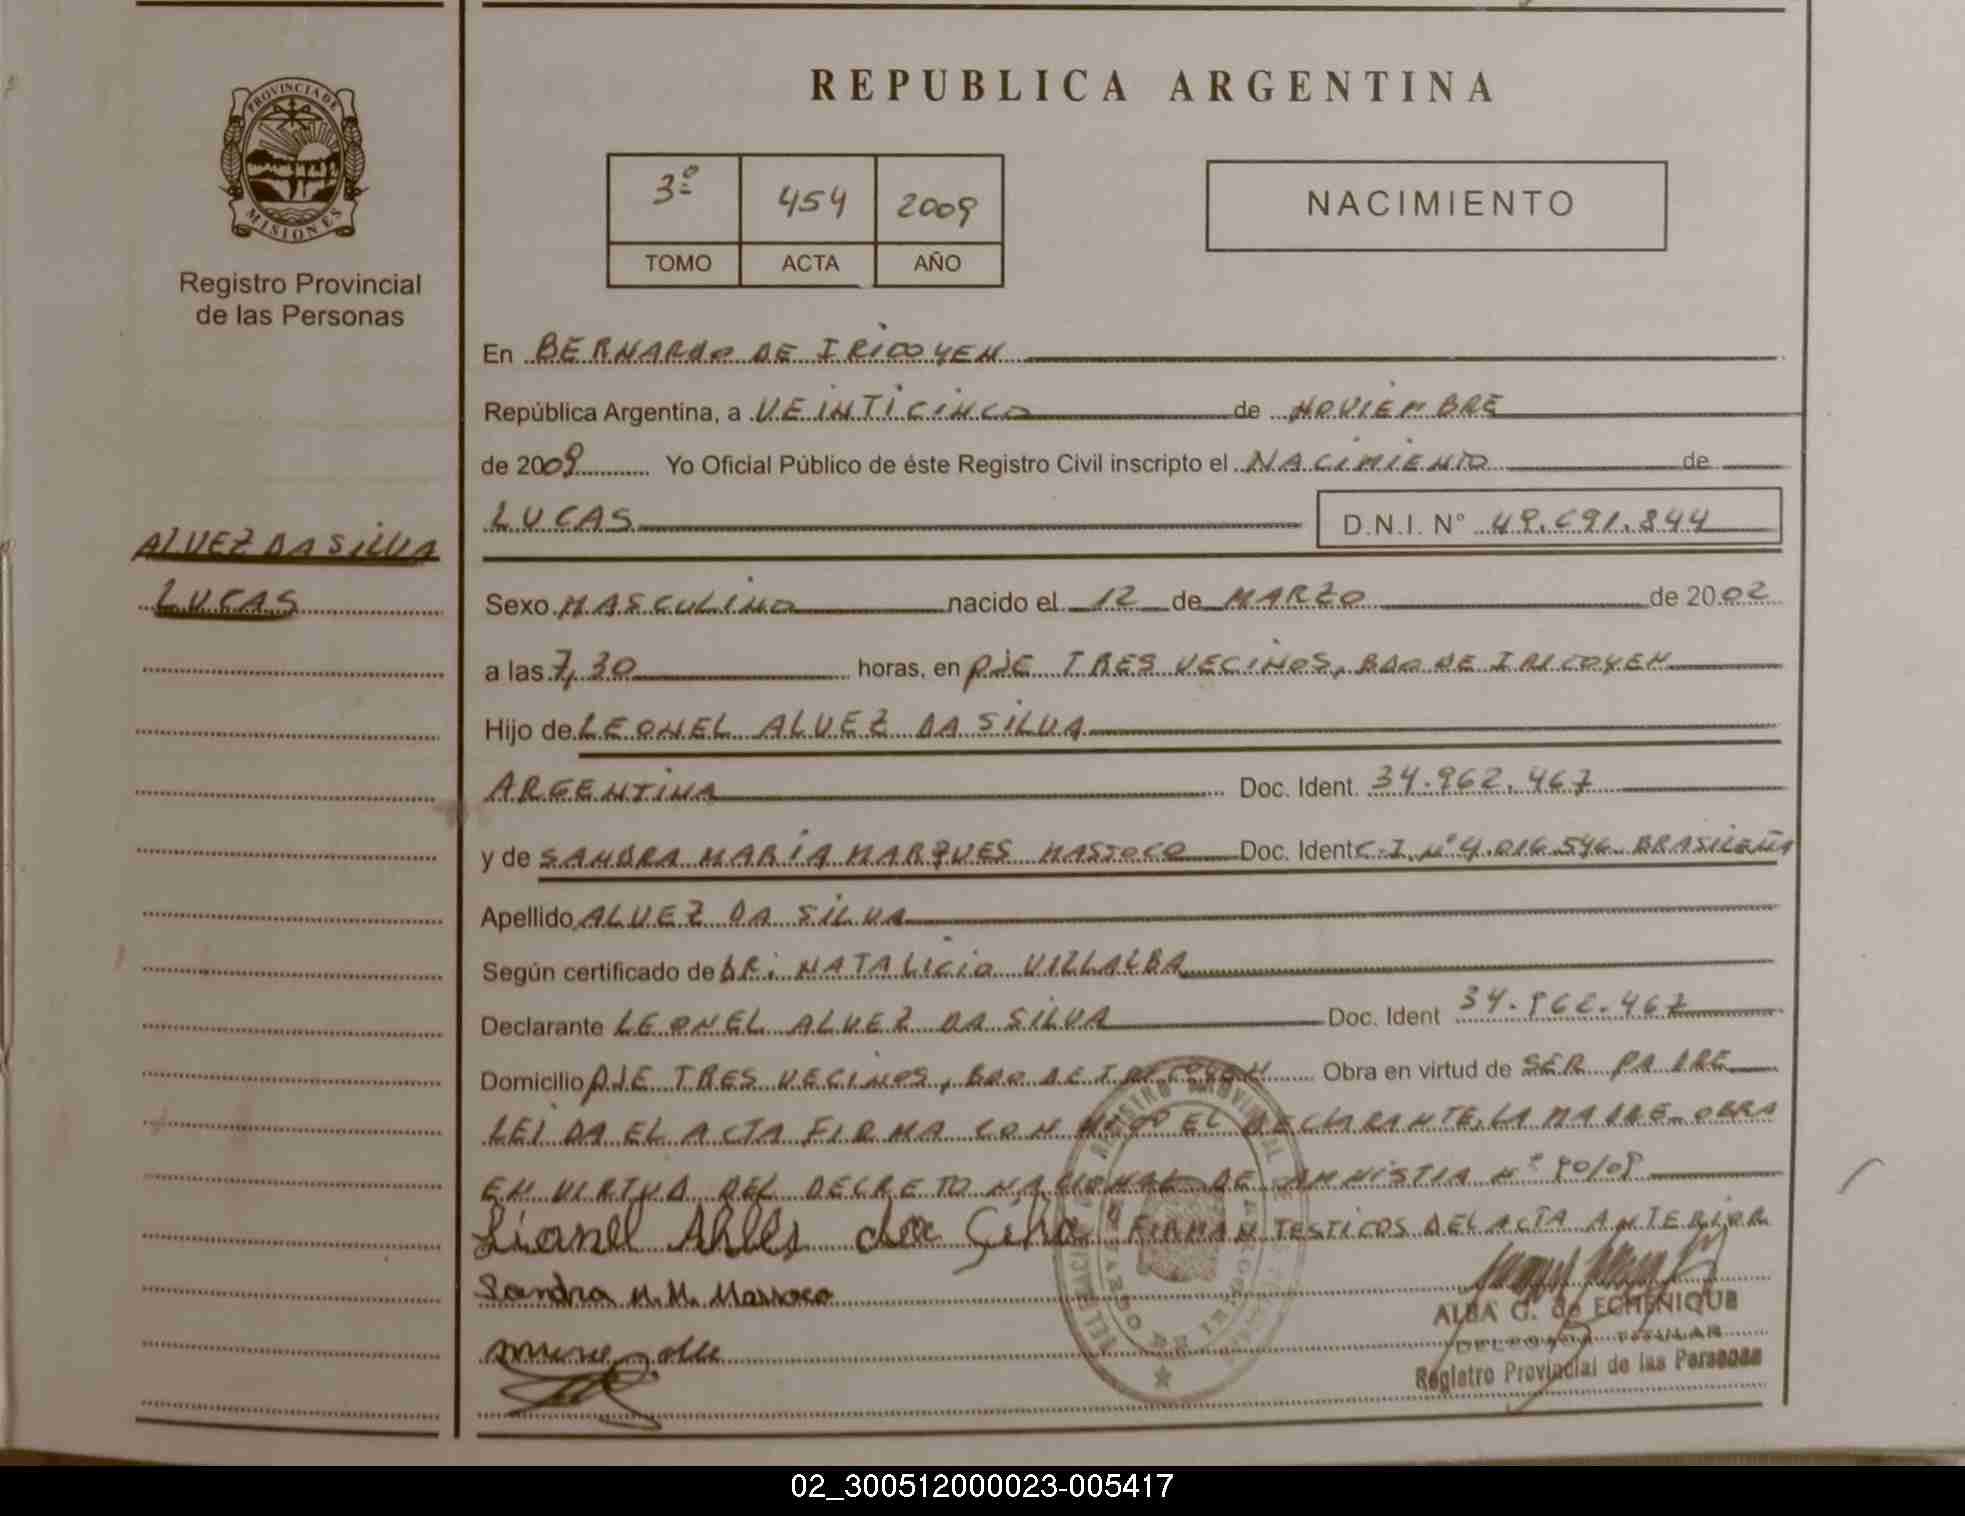 PROVINCIA DE
MISIONES
Registro Provincial
de las Personas
ALVEZ DA SILVA
LUCAS
REPUBLICA ARGENTINA
3º 454 2009
TOMO ACTA AÑO
NACIMIENTO
En BERNARDO DE IRIGOYEN
República Argentina, a VEINTICINCO de NOVIEMBRE
de 2009 Yo Oficial Público de éste Registro Civil inscripto el NACIMIENTO de
LUCAS D.N.I. N° 49.691.844
Sexo MASCULINO nacido el 12 de MARZO de 2002
a las 7,30 horas, en PJE TRES VECINOS, BDO DE IRIGOYEN
Hijo de LEONEL ALVEZ DA SILVA
ARGENTINA Doc. Ident. 34.962.467
y de SANDRA MARIA MARQUES MASSOCO Doc. Ident C.I. Nº 4.016.546 BRASILEÑA
Apellido ALVEZ DA SILVA
Según certificado de DR: NATALICIO VILLALBA
Declarante LEONEL ALVEZ DA SILVA Doc. Ident 34.962.467
Domicilio PJE TRES VECINOS, BDO DE IRIGOYEN Obra en virtud de SER PADRE
LEIDA EL ACTA FIRMA CONMIGO EL DECLARANTE, LA MADRE. OBRA
EN VIRTUD DEL DECRETO NACIONAL DE AMNISTIA Nº 90/09
FIRMAN TESTIGOS DEL ACTA ANTERIOR
Sandra M. M. Massoco
ALBA G. de ECHENIQUE
DELEGADA TITULAR
Registro Provincial de las Personas
02_300512000023-005417